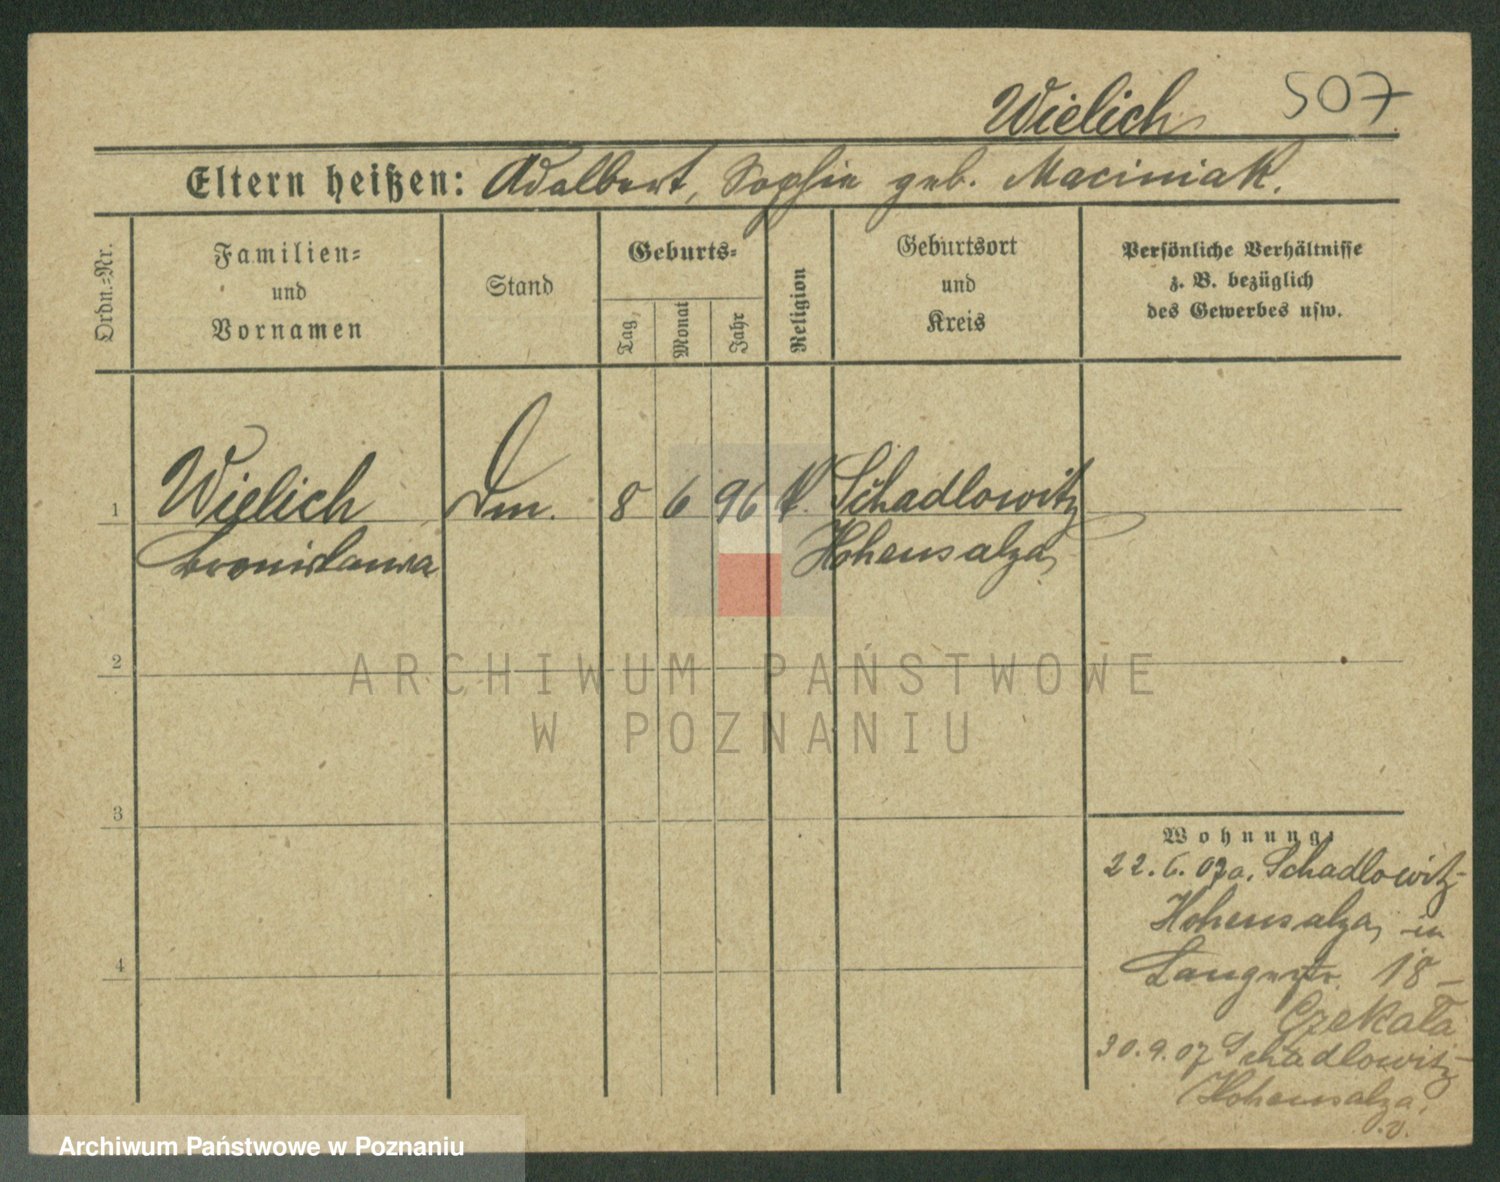 Wielich 507
Eltern heißen: Adalbert, Sophie geb. Maciniak.
Ordn.-Nr.
Familien-
und
Vornamen
Stand
Geburts-
Tag,
Monat
Jahr
Religion
Geburtsort
und
Kreis
Persönliche Verhältnisse
z. B. bezüglich
des Gewerbes usw.
1 Wielich Dm. 8 6 96 k. Schadlowitz
Bronisława Hohensalza
2
3
4
Wohnung:
22.6.07 a. Schadlowitz-
Hohensalza, in
Langestr. 18 -
Czekała
30.9.07 Schadlowitz-
Hohensalza,
v.
ARCHIWUM PAŃSTWOWE
W POZNANIU
Archiwum Państwowe w Poznaniu